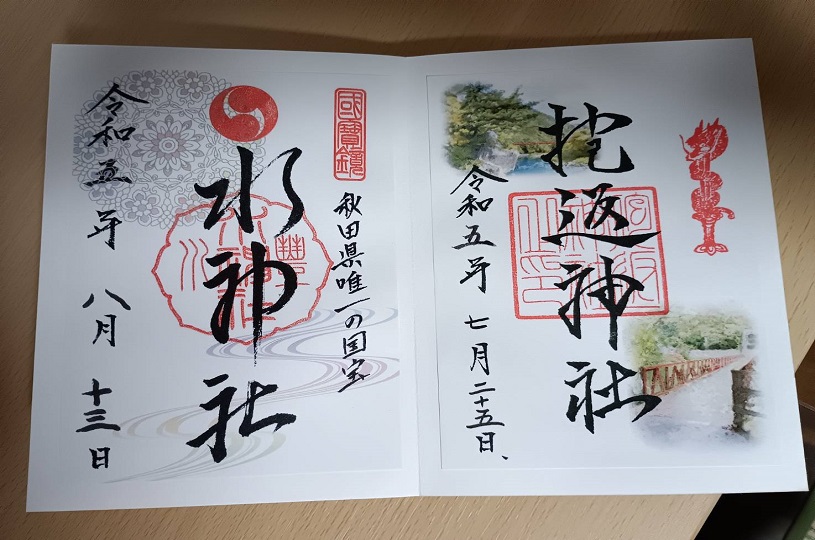 抱返神社
令和五年 七月二十五日、
國寶鏡
秋田県唯一の国宝
水神社
令和五年 八月 十三日